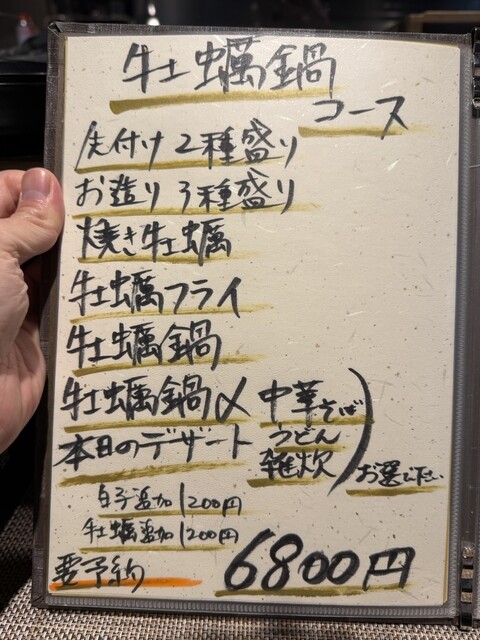 牡蠣鍋
コース
先付け2種盛り
お造り3種盛り
焼き牡蠣
牡蠣フライ
牡蠣鍋
牡蠣鍋〆 中華そば
うどん
雑炊
お選び下さい
本日のデザート
白子追加 1200円
牡蠣追加 1200円
要予約 6800円